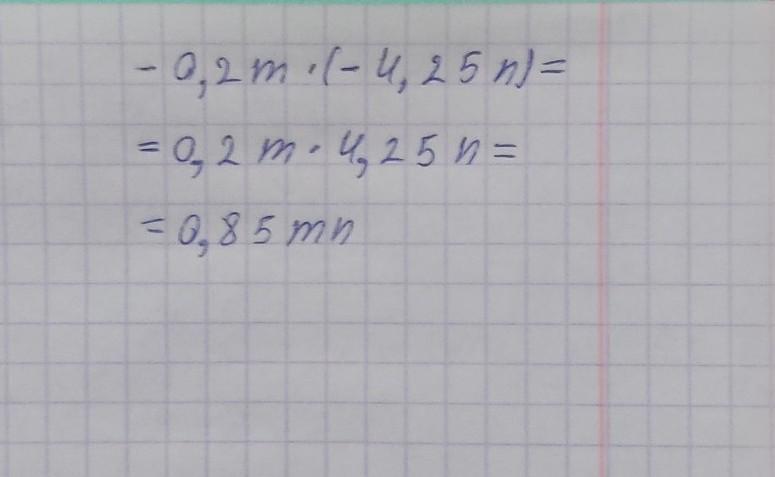 - 0,2m·(-4,25n)=
=0,2m·4,25n=
=0,85mn